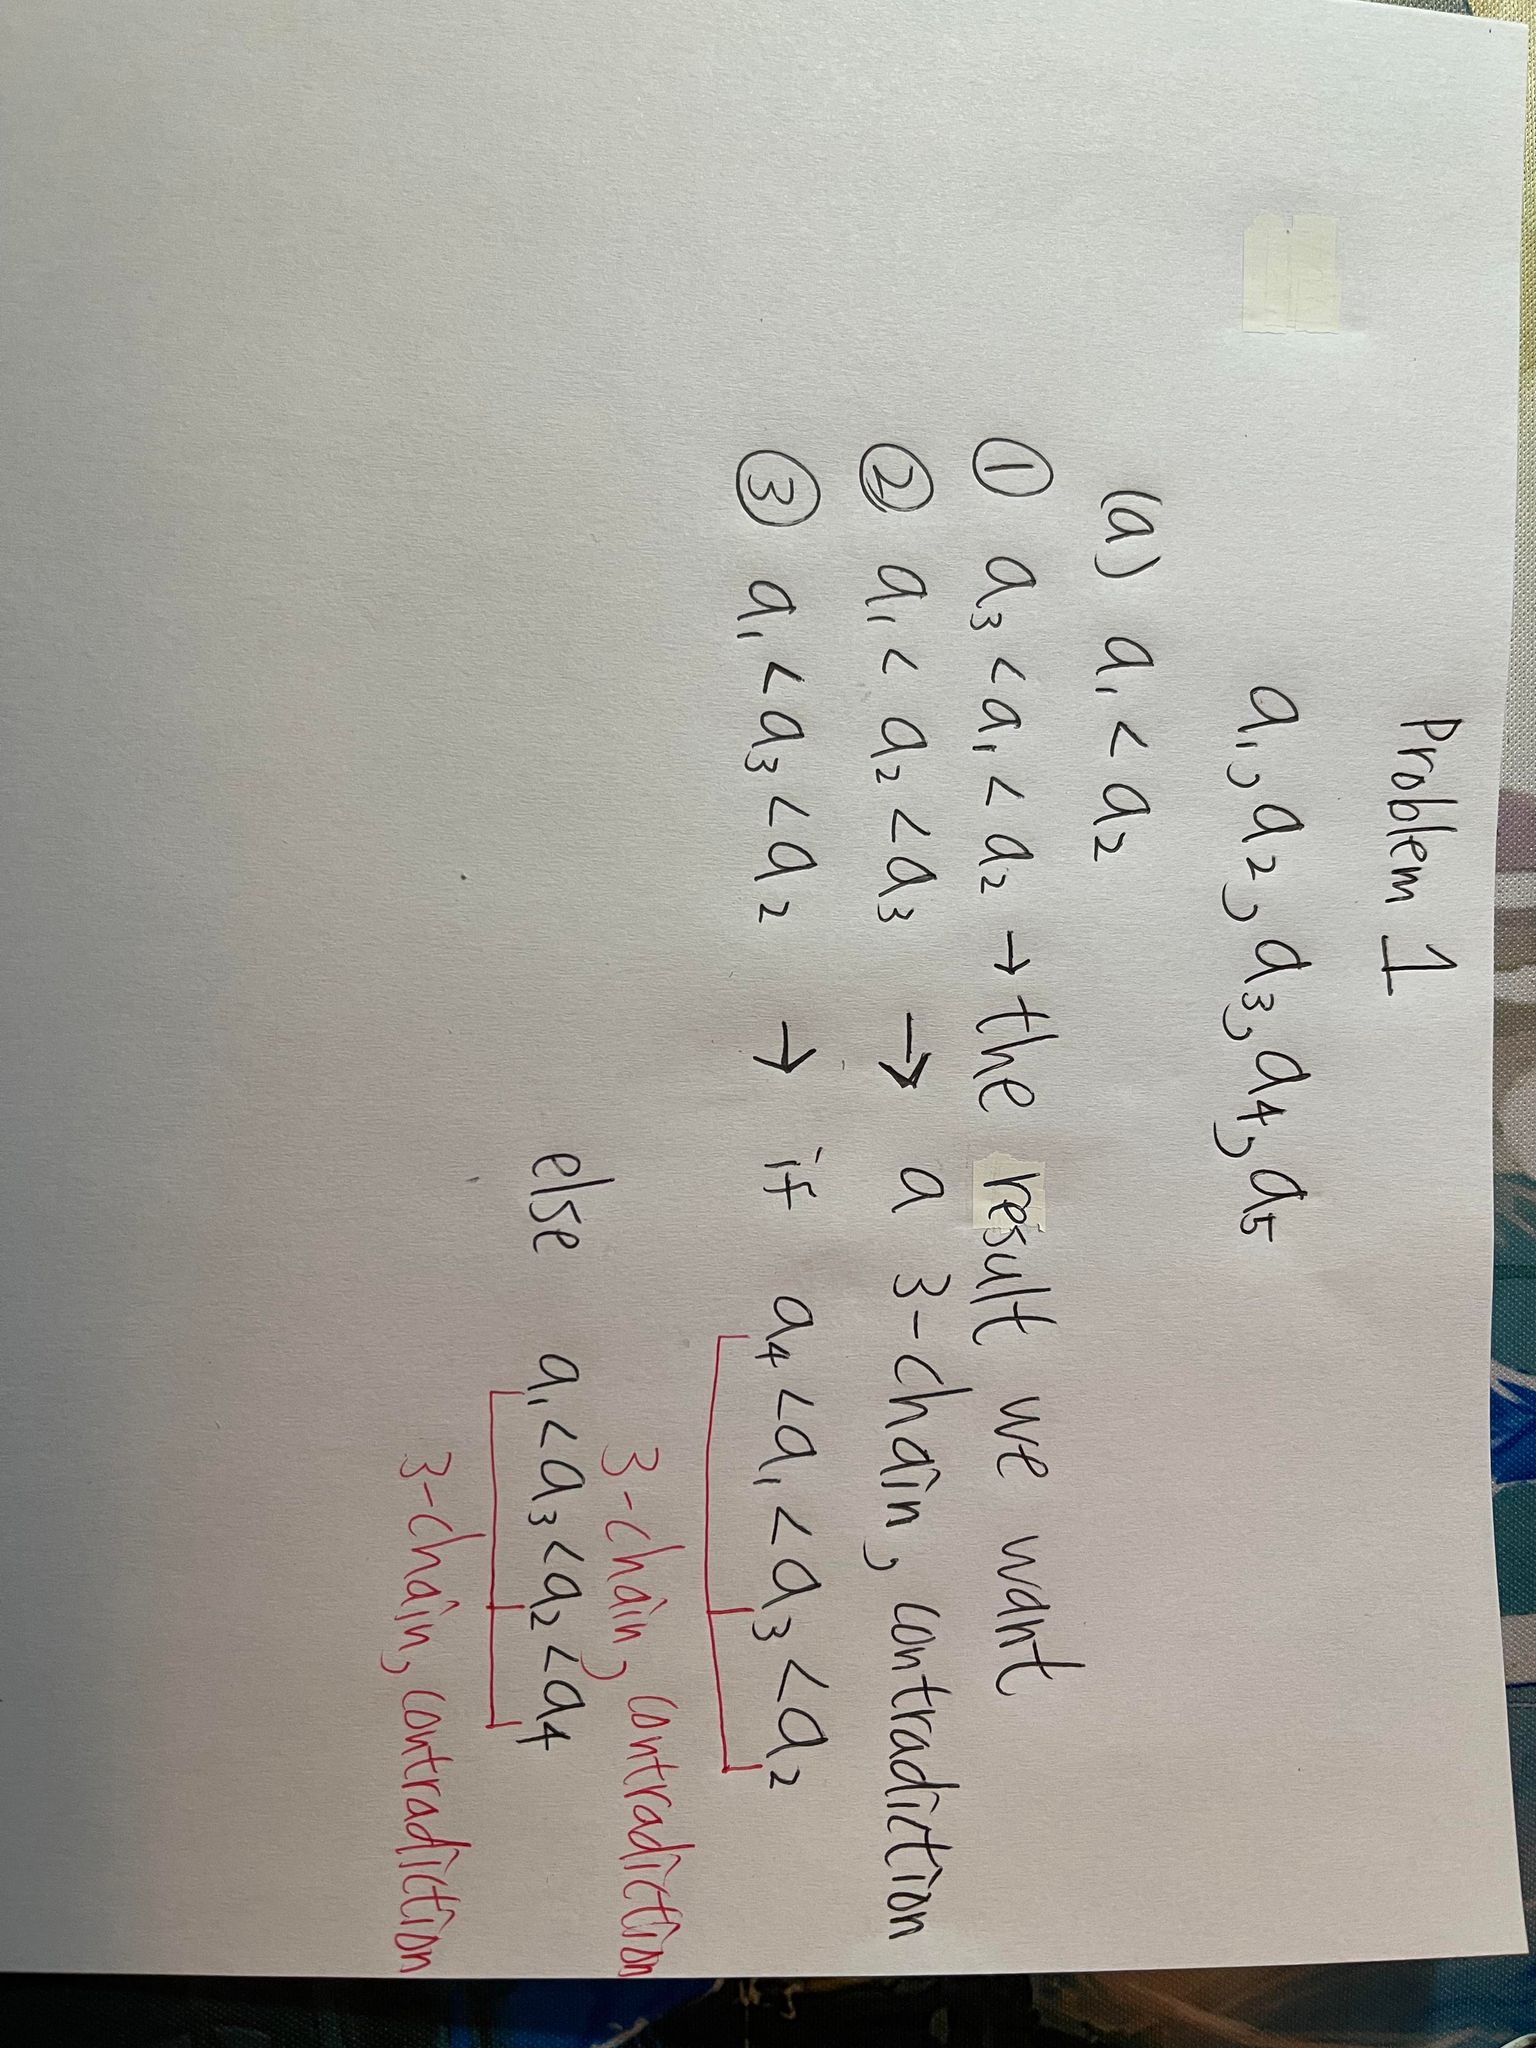 Problem 1
a₁, a₂, a₃, a₄, a₅
(a) a₁ < a₂
① a₃ < a₁ < a₂ → the result we want
② a₁ < a₂ < a₃ → a 3-chain, contradiction
③ a₁ < a₃ < a₂ → if a₄ < a₁ < a₃ < a₂
3-chain, contradiction
else a₁ < a₃ < a₂ < a₄
3-chain, contradiction